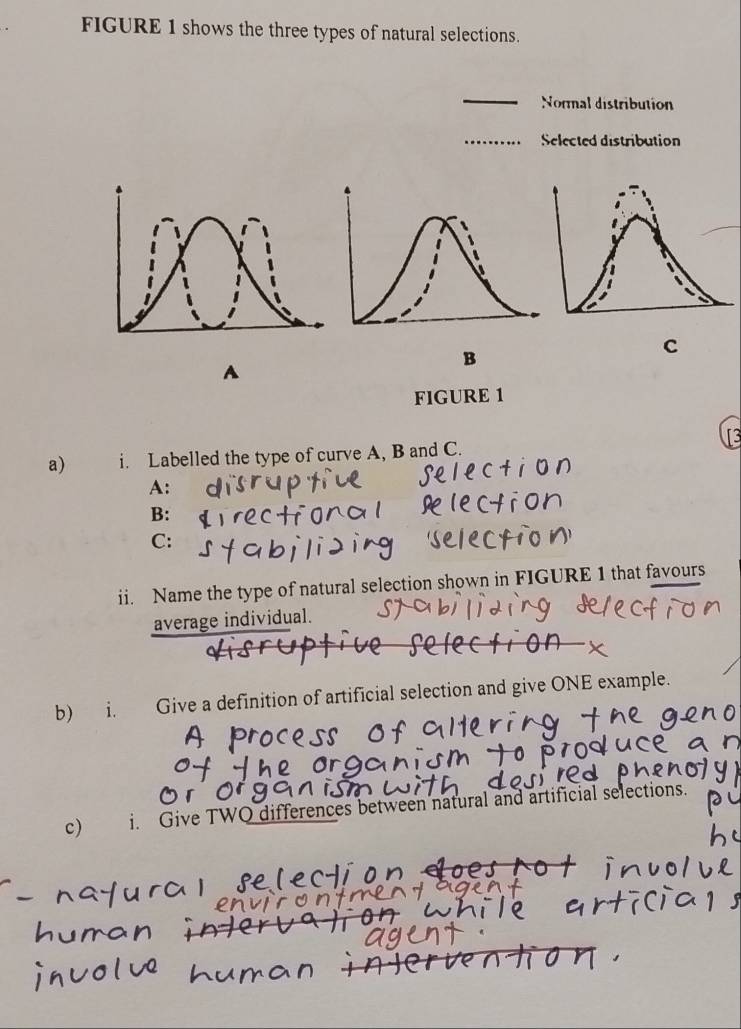 FIGURE 1 shows the three types of natural selections.
Normal distribution
Selected distribution
A
B
C
FIGURE 1
[3
a) i. Labelled the type of curve A, B and C.
A: disruptive selection
B: directional selection
C: stabilizing selection
ii. Name the type of natural selection shown in FIGURE 1 that favours
average individual. stabilizing selection
disruptive selection x
b) i. Give a definition of artificial selection and give ONE example.
A process of altering the geno
of the organism to produce an
or organism with desired phenotyp
c) i. Give TWO differences between natural and artificial selections.
pu
- natural selection does not involve
environtment agent
human intervation while articial s
agent.
involve human intervention.